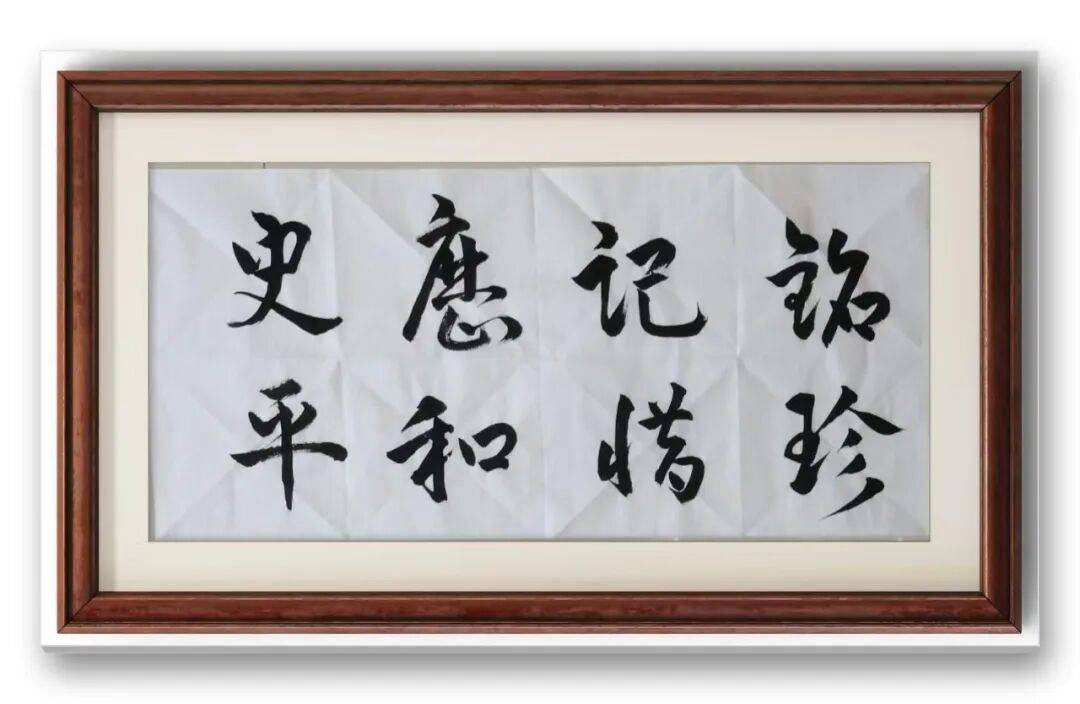 铭记歷史
珍惜和平